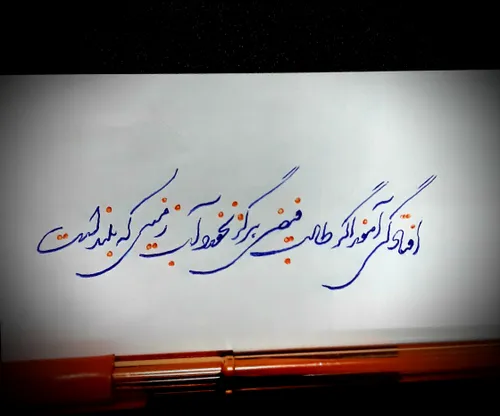 افتادگی آموز اگر طالب فیضی هرگز نخورد آب زمینی که بلند است